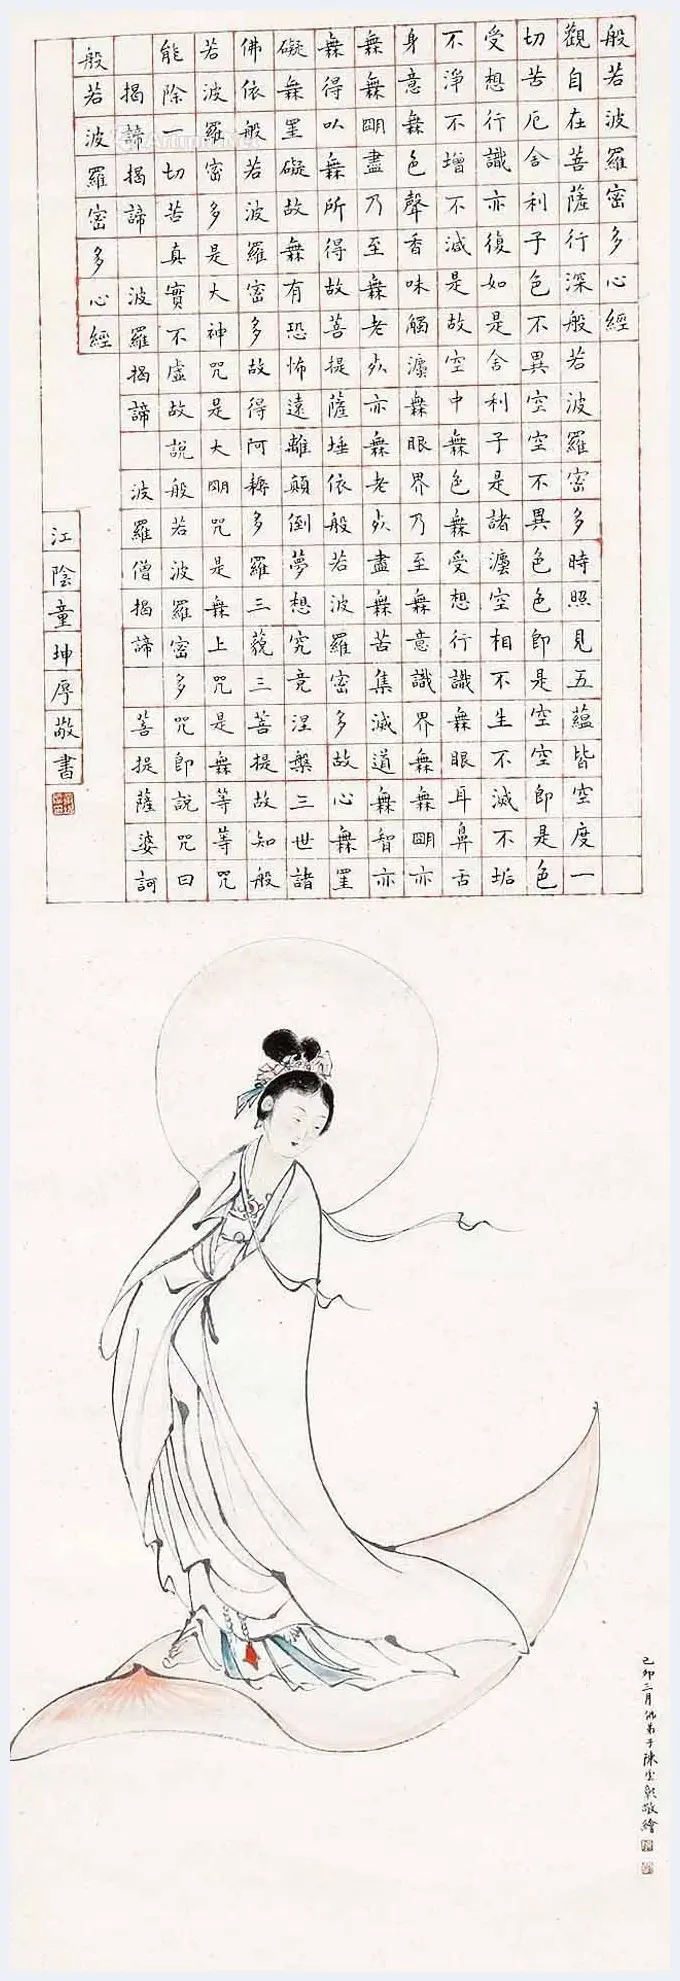 般若波羅密多心經
觀自在菩薩行深般若波羅密多時照見五蘊皆空度一
切苦厄舍利子色不異空空不異色色即是空空即是色
受想行識亦復如是舍利子是諸灋空相不生不滅不垢
不淨不增不減是故空中無色無受想行識無眼耳鼻舌
身意無色聲香味觸灋無眼界乃至無意識界無無朙亦
無無朙盡乃至無老死亦無老死盡無苦集滅道無智亦
無得以無所得故菩提薩埵依般若波羅密多故心無罣
礙無罣礙故無有恐怖遠離顛倒夢想究竟涅槃三世諸
佛依般若波羅密多故得阿耨多羅三藐三菩提故知般
若波羅密多是大神咒是大朙咒是無上咒是無等等咒
能除一切苦真實不虛故說般若波羅密多咒即說咒曰
揭諦揭諦 波羅揭諦 波羅僧揭諦 菩提薩婆訶
般若波羅密多心經
江陰童坤厚敬書
己卯二月佛弟子陳雲彰敬繪